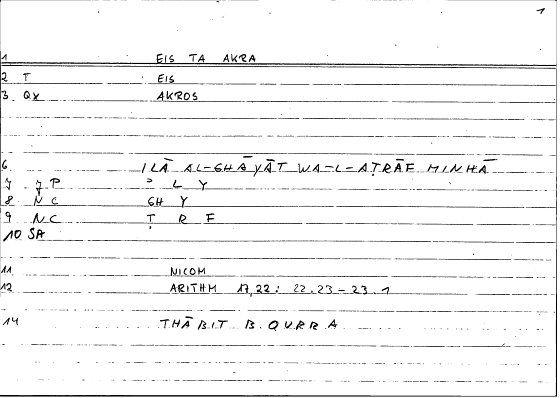 1
1 EIS TA AKRA
2 T EIS
3 Qx AKROS
6 ILĀ AL-GHĀYĀT WA-L-AṬRĀF MINHĀ
7 yP ʾ L Y
8 NC GH Y
9 NC Ṭ R F
10 SA
11 NICOM
12 ARITHM 17,22: 22.23-23.1
14 THĀBIT B. QURRA